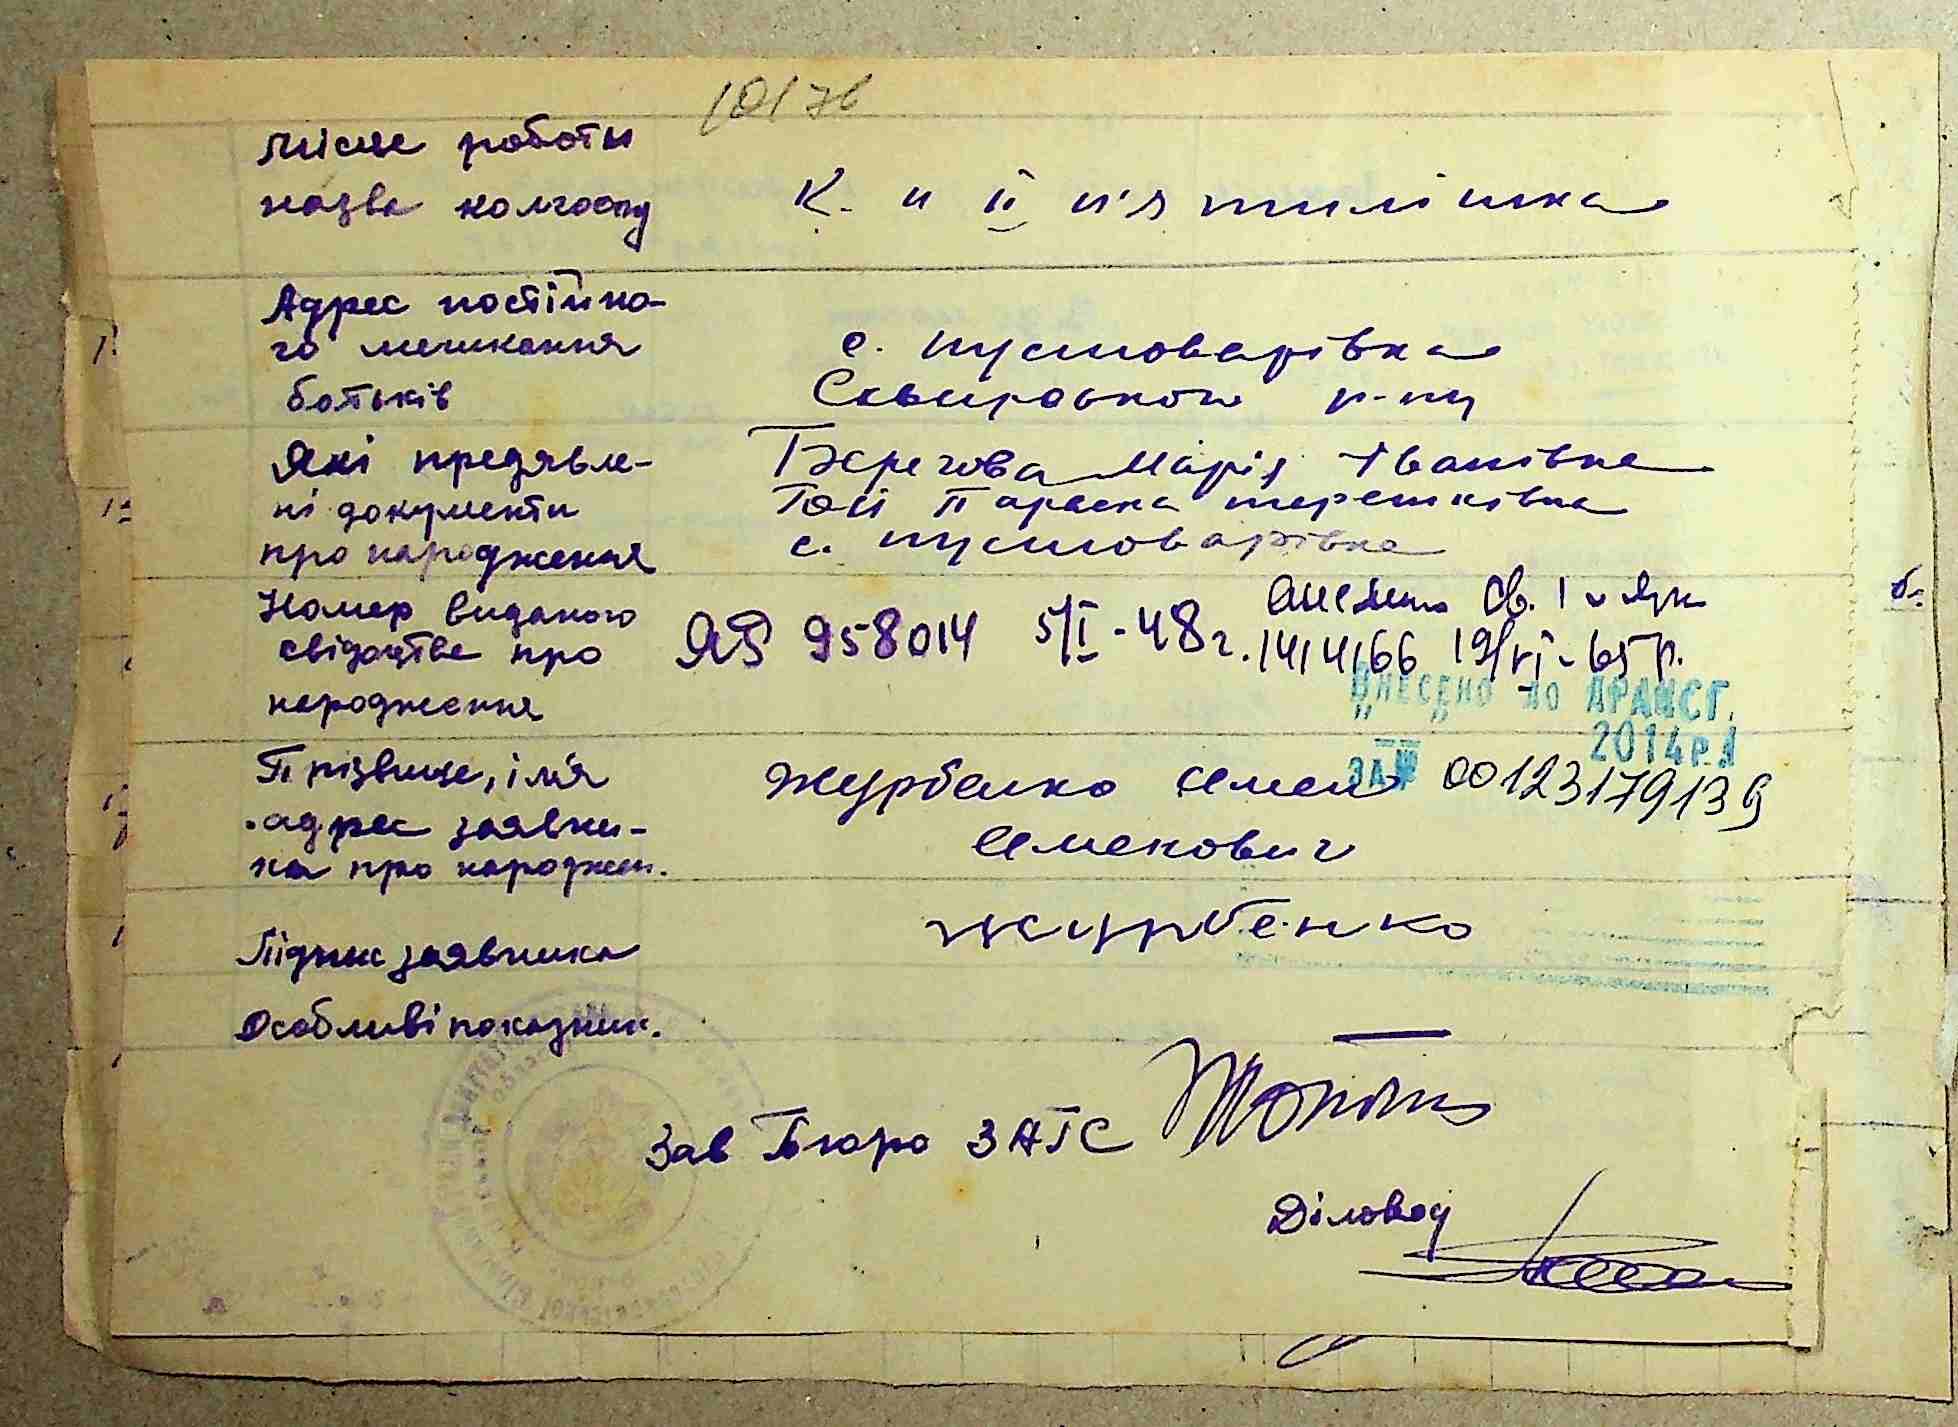 Місце роботи
назва колгоспу
К. п ІІ п'ятилітка
Адрес постійно-
го мешкання
батьків
с. Пустоварівка
Сквирського р-ну
Які предявле-
ні документи
про народження
Берегова Марія Іванівна
Гой Параска Терешківна
с. Пустоварівка
Номер виданого
свідоцтва про
народження
ЯЮ 958014 5/I-48 г.
Св. І
19/VI-65 р.
ВНЕСЕНО ДО ДРАЦСГ.
2014 р.
ЗА № 00123179139
Прізвище, ім'я
адрес заявни-
ка про народжен.
Журбенко Семен
Семенович
Підпис заявника
Журбенко
Особливі показник.
—
Зав Бюро ЗАГС
Діловод